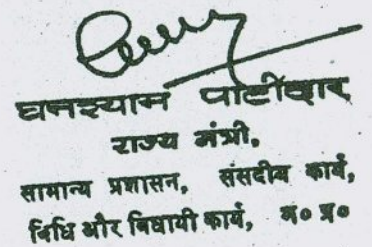 घनश्याम पाटीदार
राज्य मंत्री,
सामान्य प्रशासन, संसदीय कार्य,
विधि और विधायी कार्य, म० प्र०